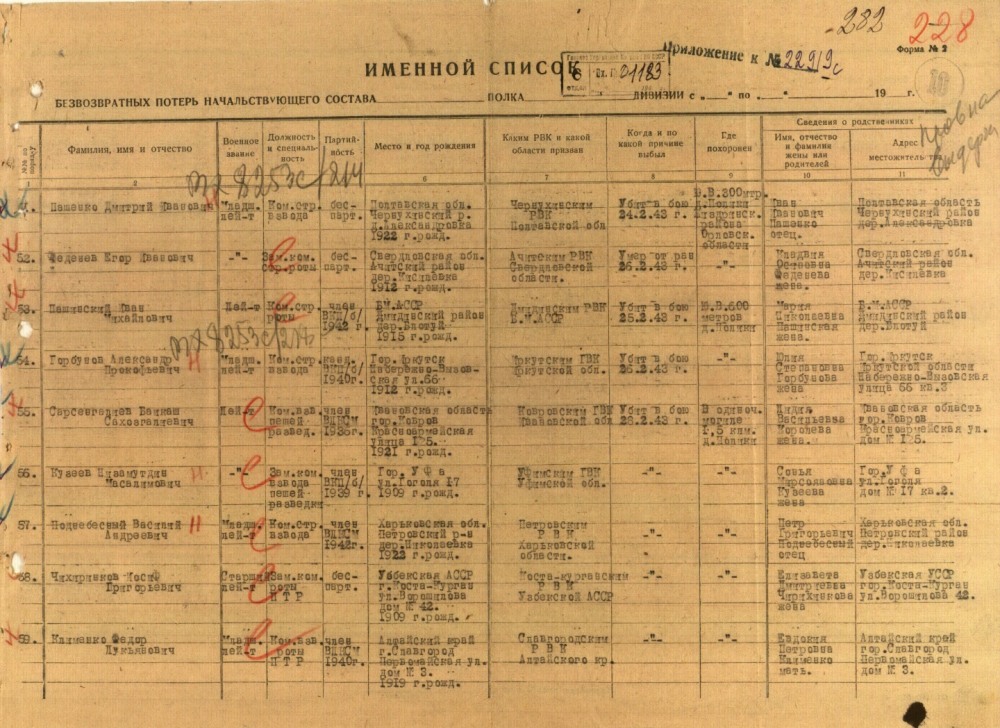 282
228
Форма № 2
Приложение к № 229/9с
01183
ИМЕННОЙ СПИСОК
БЕЗВОЗВРАТНЫХ ПОТЕРЬ НАЧАЛЬСТВУЮЩЕГО СОСТАВА ПОЛКА ДИВИЗИИ с „ “ по „ “ 19 г.
№№ по порядку
Фамилия, имя и отчество
Военное звание
Должность и специальность
Партийность
Место и год рождения
Каким РВК и какой области призван
Когда и по какой причине выбыл
Где похоронен
Сведения о родственниках
Имя, отчество и фамилия жены или родителей
Адрес
2 6 7 8 9 10 11
вх 8253с/214
Пашенко Дмитрий Иванович
Младш. лей-т
Ком.стр. взвода
бес-парт.
Полтавская обл. Чернухинский р. д.Александровка 1922 г.рожд.
Чернухинским РВК Полтавской обл
Убит в бою 24.2.43 г.
Ю.В.300мтр. района Орловск. области
Иван Иванович Пашенко отец.
Полтавская область Чернухинский район дер.Александровка
52.
Феденев Егор Иванович
-"-
Зам.ком.
бес-парт.
Свердловская обл. Ачитский район 1912 г.рожд.
Ачитским РВК Свердловской области.
Умер от ран 26.2.43 г.
-"-
Феденева жена.
Свердловская обл. Ачитский район
53.
Пашинский Иван Михайлович
Лей-т
Ком.стр. роты
член ВКП/б/ 1942 г.
Б.М.АССР 1915 г.рожд.
РВК Б.М.АССР
Убит в бою 25.2.43 г.
Ю.В.600 метров
Мария Николаевна Пашинская жена.
Б.М.АССР
54.
Горбунов Александр Прокофьевич
Младш. лей-т
Ком.стр. взвода
канд. ВКП/б/ 1940г.
Гор.Иркутск 1912 г.рожд.
Иркутским ГВК Иркутской обл.
Убит в бою 26.2.43 г.
-"-
Юлия Степановна Горбунова жена
Гор.Иркутск Иркутской области
55.
Лей-т
Ком.взв. пешей развед.
член ВЛКСМ
Ивановская область гор.Ковров Красноармейская улица № 125. 1921 г.рожд.
Ковровским ГВК Ивановской обл
Убит в бою
В одиноч. могиле
Лидия Васильевна Королева жена.
Ивановская область гор.Ковров Красноармейская ул. дом № 125.
56.
Кузеев Низамутдин Масалимович
-"-
Зам.ком. взвода пешей разведки
член ВКП/б/ 1939 г.
Гор. Уфа ул.Гоголя 17 1909 г.рожд.
Уфимским ГВК Уфимской обл.
-"-
-"-
Кузеева жена
Гор.Уфа ул.Гоголя дом № 17 кв.2.
57.
Поднебесный Василий Андреевич
Младш. лей-т
Ком.стр. взвода
член ВЛКСМ 1942г.
Харьковская обл. Петровский р-н дер.Николаевка 1922 г.рожд.
Петровским РВК Харьковской области.
-"-
-"-
Петр Григорьевич Поднебесный отец
Харьковская обл. Петровский район дер.Николаевка
58.
Чихиринков Иосиф Григорьевич
Старший лей-т
Зам.ком. роты ПТР
бес-парт.
Узбекская АССР г.Коста-Курган ул.Ворошилова дом № 42. 1909 г.рожд.
Коста-курганским РВК Узбекской АССР
-"-
-"-
Елизавета Дмитриевна жена
Узбекская УССР гор.Коста-Курган ул.Ворошилова 42.
59.
Клименко Федор Лукьянович
Младш. лей-т
Ком.взв. роты ПТР
член ВЛКСМ 1940г.
Алтайский край г.Славгород Первомайская ул. дом № 3. 1919 г.рожд.
Славгородским РВК Алтайского кр.
-"-
-"-
Евдокия Петровна Клименко мать.
Алтайский край гор.Славгород Первомайская ул. дом № 3.